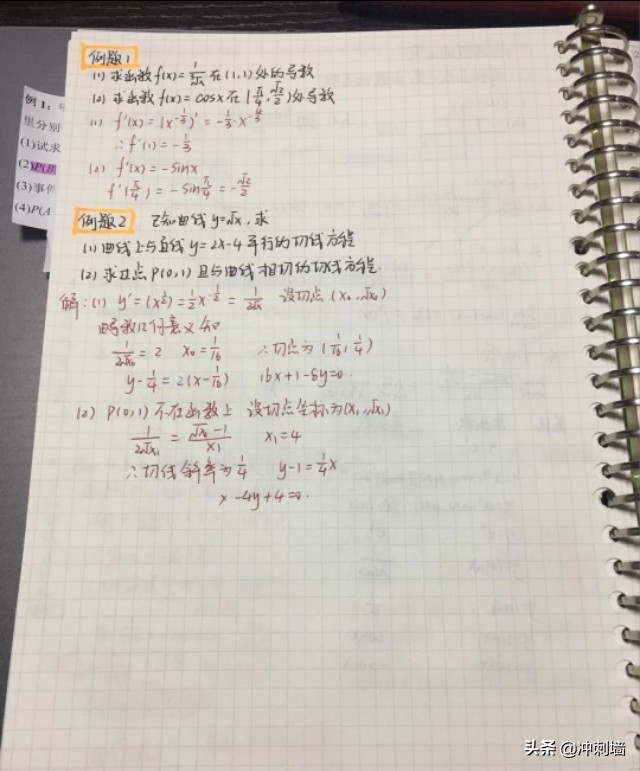 例题1
(1) 求函数 f(x)=1/³√x 在(1,1)处的导数
(2) 求函数 f(x)=cosx 在(π/4, √2/2)处导数
(1) f'(x)=(x^(-1/3))'=-1/3·x^(-4/3)
∴f'(1)=-1/3
(2) f'(x)=-sinx
f'(π/4)=-sinπ/4=-√2/2
例题2 已知曲线 y=√x, 求
(1) 曲线上与直线 y=2x-4 平行的切线方程
(2) 求过点 P(0,1) 且与曲线相切的切线方程.
解: (1) y'=(x^(1/2))'=1/2 x^(-1/2)=1/(2√x) 设切点(x₀,√x₀)
由导数几何意义知
1/(2√x₀)=2 x₀=1/16 ∴切点为(1/16, 1/4)
y-1/4=2(x-1/16) 16x+1-8y=0.
(2) P(0,1)不在函数上 设切点坐标为(x₁,√x₁)
1/(2√x₁)=(√x₁-1)/x₁ x₁=4
∴切线斜率为1/4 y-1=1/4x
x-4y+4=0.
例1:
里分别
(1)试求
(2)P(B
(3)事件
(4)P(A
头条 @冲刺墙